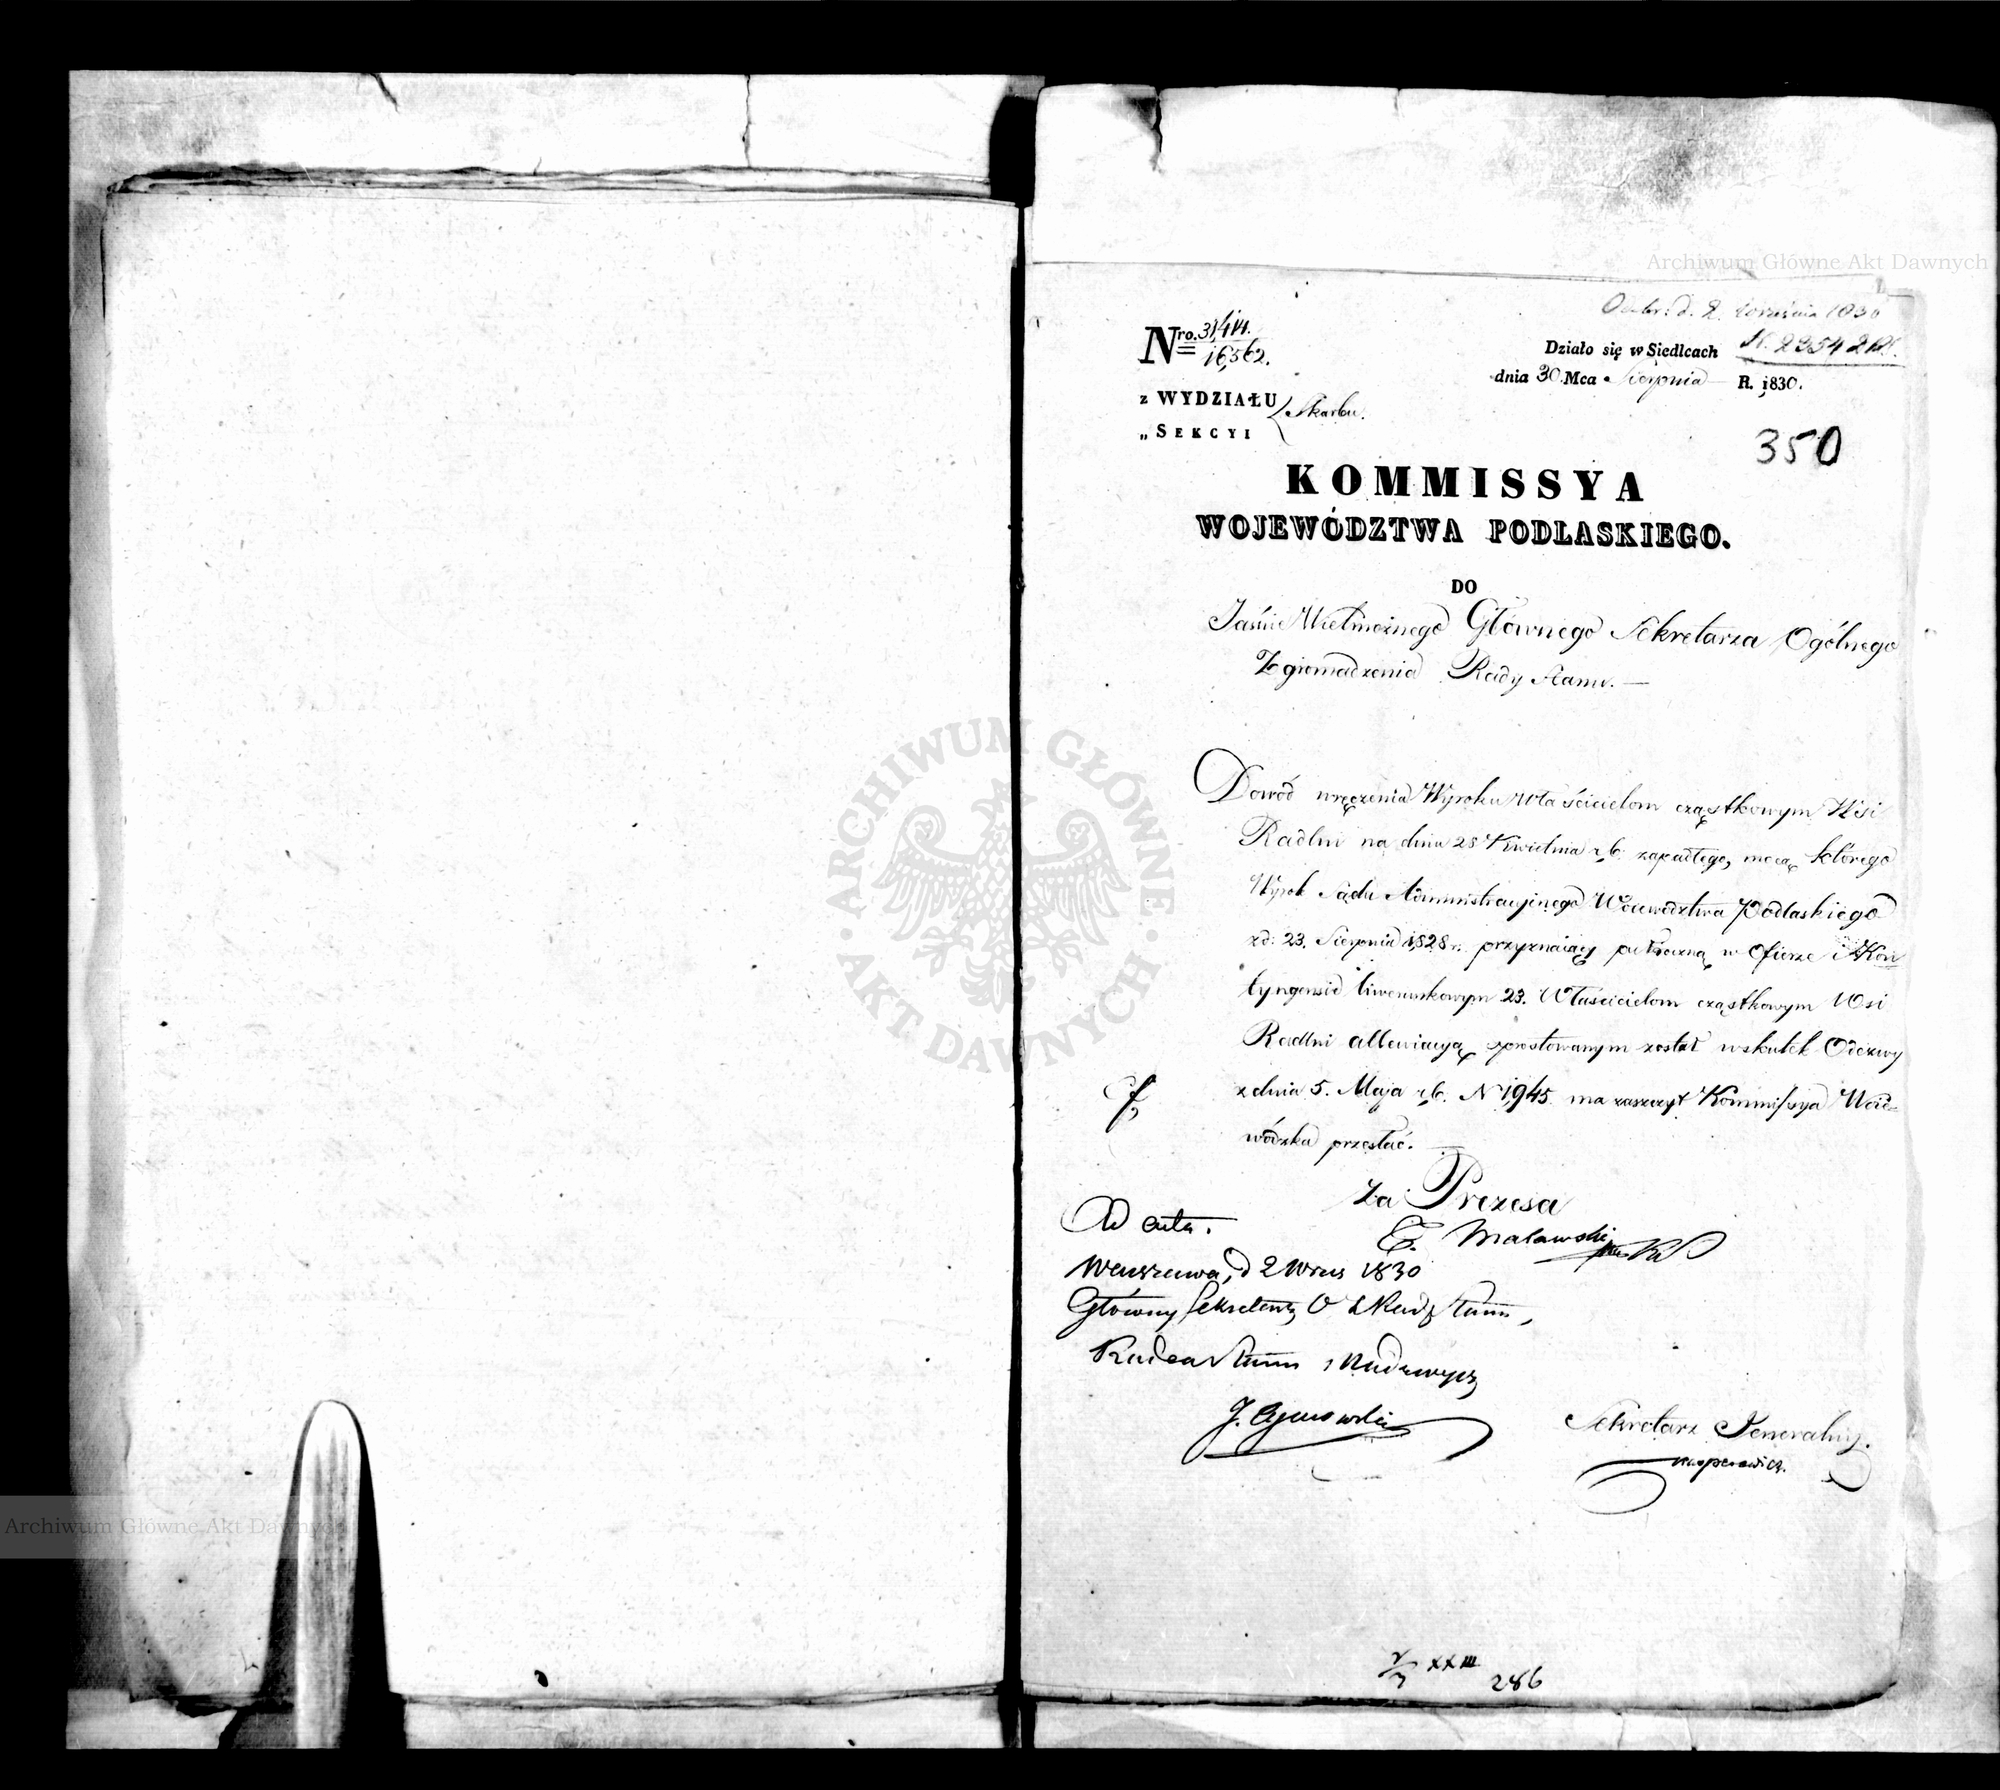 Archiwum Główne Akt Dawnych
Odebr: d. 2. Września 1830
N. 2354 2
Nro. 31,414.
16,562.
Działo się w Siedlcach
dnia 30. Mca Sierpnia R. 1830.
z WYDZIAŁU Skarbu.
„ SEKCYI
350
KOMMISSYA
WOJEWÓDZTWA PODLASKIEGO.
DO
Jaśnie Wielmożnego Głównego Sekretarza Ogólnego
Zgromadzenia Rady Stanu.
Dowód wręczenia Wyroku Właścicielom cząstkowym Wsi
Radlni na dniu 28 Kwietnia r,b. zapadłego, mocą którego
Wyrok Sądu Administracyjnego Województwa Podlaskiego
z d: 23. Sierpnia 1,828 r. przyznaiący w Ofierze i Kon=
tyngensie liwerunkowym 23. Właścicielom cząstkowym Wsi
Radlni allewiacyą sprostowanym został wskutek Odezwy
z dnia 5. Maja r,b. N 1,945 ma zaszczyt Kommissya Woie=
wódzka przesłać.
Za Prezesa
E. Malawski
Ad acta.
Warszawa, d 2 Wrzes 1830
Główny Sekretarz O Z Rady Stanu,
Radca Stanu Nadzwycz
Sekretarz Generalny.
Kasperowicz.
XXIII
286
ARCHIWUM GŁÓWNE
AKT DAWNYCH
Archiwum Główne Akt Dawnych